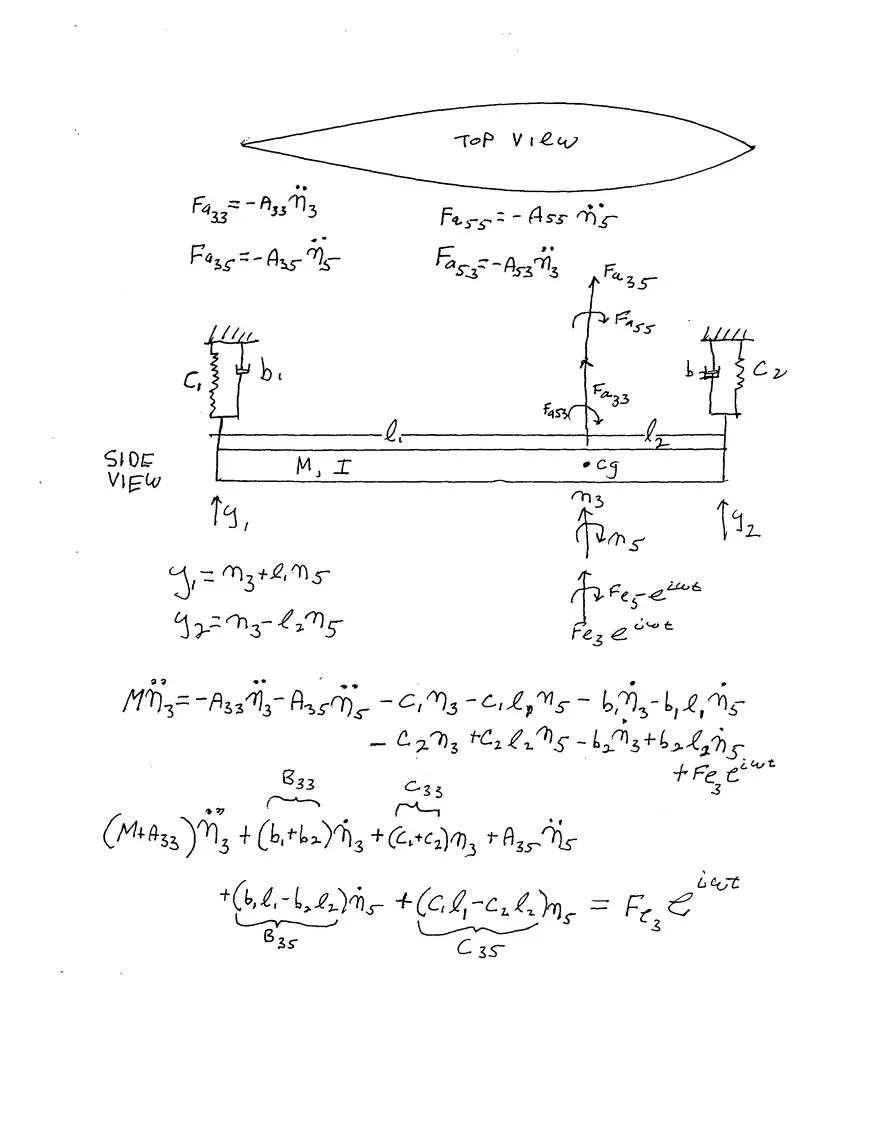 TOP VIEW
Fa₃₃ = -A₃₃ η̈₃
Fa₅₅ = -A₅₅ η̈₅
Fa₃₅ = -A₃₅ η̈₅
Fa₅₃ = -A₅₃ η̈₃
Fa₃₅
Fa₅₅
C₁
b₁
b
C₂
Fa₃₃
Fa₅₃
l₁
l₂
SIDE
VIEW
M, I
cg
η₃
y₁
η₅
y₂
y₁ = η₃ + l₁η₅
Fe₅ e^{iωt}
y₂ = η₃ - l₂η₅
Fe₃ e^{iωt}
Mη̈₃ = -A₃₃η̈₃ - A₃₅η̈₅ - C₁η₃ - C₁l₁η₅ - b₁η̇₃ - b₁l₁η̇₅
- C₂η₃ + C₂l₂η₅ - b₂η̇₃ + b₂l₂η̇₅
+ Fe₃ e^{iωt}
B₃₃ C₃₃
(M+A₃₃)η̈₃ + (b₁+b₂)η̇₃ + (C₁+C₂)η₃ + A₃₅η̈₅
+(b₁l₁-b₂l₂)η̇₅ + (C₁l₁-C₂l₂)η₅ = Fe₃ e^{iωt}
B₃₅ C₃₅